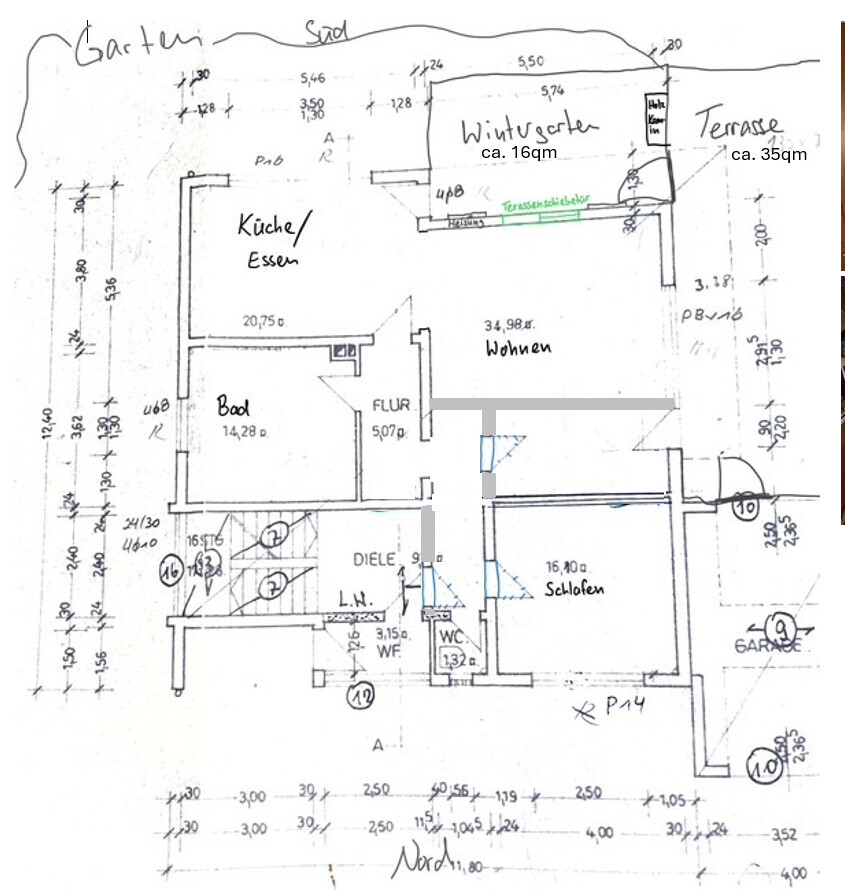 Garten
Süd
30
5,46
24
5,50
30
1,28
3,50
1,30
1,28
5,74
Holz
Kam-
in
Wintergarten
ca. 16qm
Terrasse
ca. 35qm
A
R
P16
1,30
30
30
Terassenschiebetür
Heizung
Küche/
Essen
2,00
3,80
5,36
20,75
34,98
Wohnen
24
2,91⁵
1,30
Bad
14,28
FLUR
5,07
R
12,40
3,62
1,30
1,30
1,30
90
2,20
24
24
24/30
16
7
7
DIELE
2,40
2,40
16,10
Schlafen
10
2,50
2,365
L.H.
30
24
3,15
WF.
1,26
WC.
1,32
9
GARAGE
1,50
1,56
12
P14
A
10
2,50
2,365
30
3,00
30
2,50
40
56
1,19
2,50
1,05
30
3,00
30
2,50
11⁵
1,04⁵
24
4,00
30
24
3,52
Nord
11,80
4,00